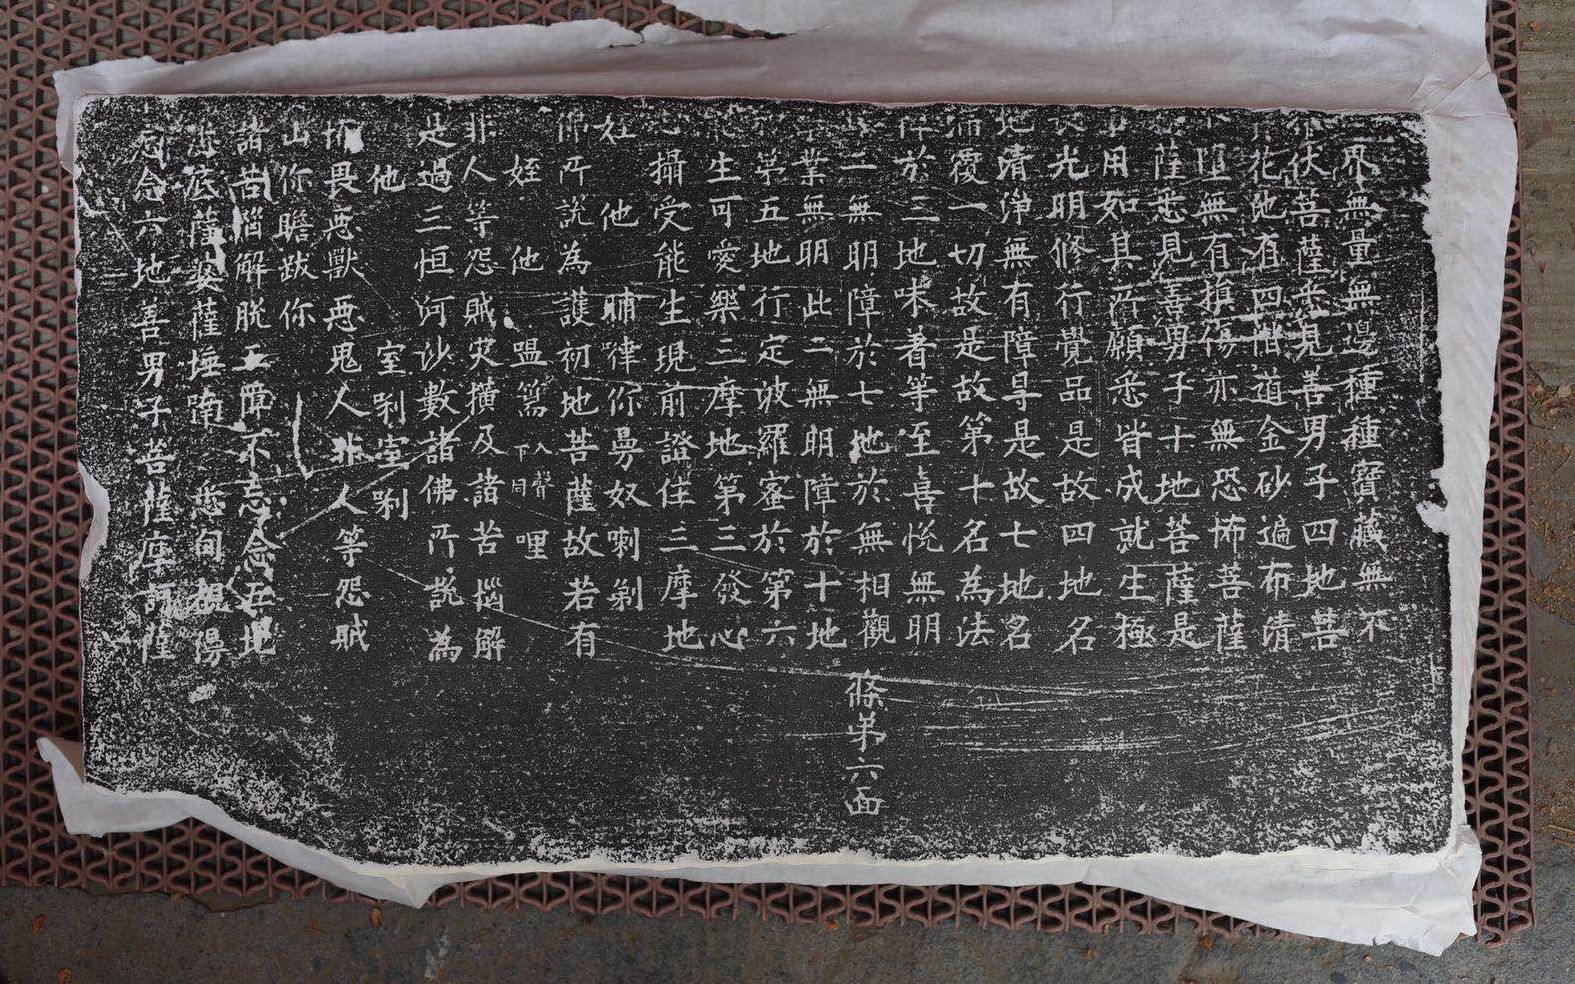 界無量無邊種種寶藏無不
伏菩薩悉見善男子四地菩
花池有四階道金砂遍布清
墮無有損傷亦無恐怖菩薩
薩悉見善男子十地菩薩是
用如其所願悉皆成就生極
光明修行覺品是故四地名
地清淨無有障㝵是故七地名
覆一切故是故第十名為法
於三地味著等至喜悅無明
二無明障於七地於無相觀
業無明此二無明障於十地
第五地行定波羅蜜於第六
生可愛樂三摩地第三發心
攝受能生現前證住三摩地
他晡嘚你曼奴喇剌
所說為護初地菩薩故若有
姪他䀈篙入聲下同哩
非人等怨賊灾撗及諸苦惱解
是過三恒河沙數諸佛所說為
他室剎室剎
畏惡獸惡鬼人非人等怨賊
你瞻跋你
諸苦惱解脫五障不忘念五地
底薩婆薩埵喃
忘念六地善男子菩薩摩訶薩
篠苐六面